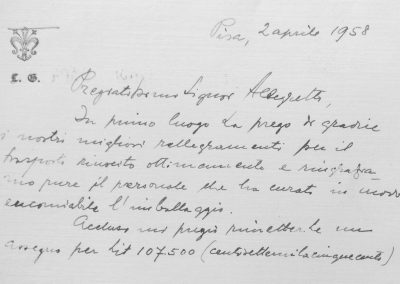 Pisa, 2 aprile 1958
L. G.
Pregiatissimo Signor Allegretti,
In primo luogo La prego di gradire
i nostri migliori rallegramenti per il
trasporto riuscito ottimamente e ringrazia-
mo pure il personale che ha curato in modo
encomiabile l'imballaggio.
Accluso mi pregio rimetterLe un
assegno per Lit 107.500 (centosettemilacinquecento)